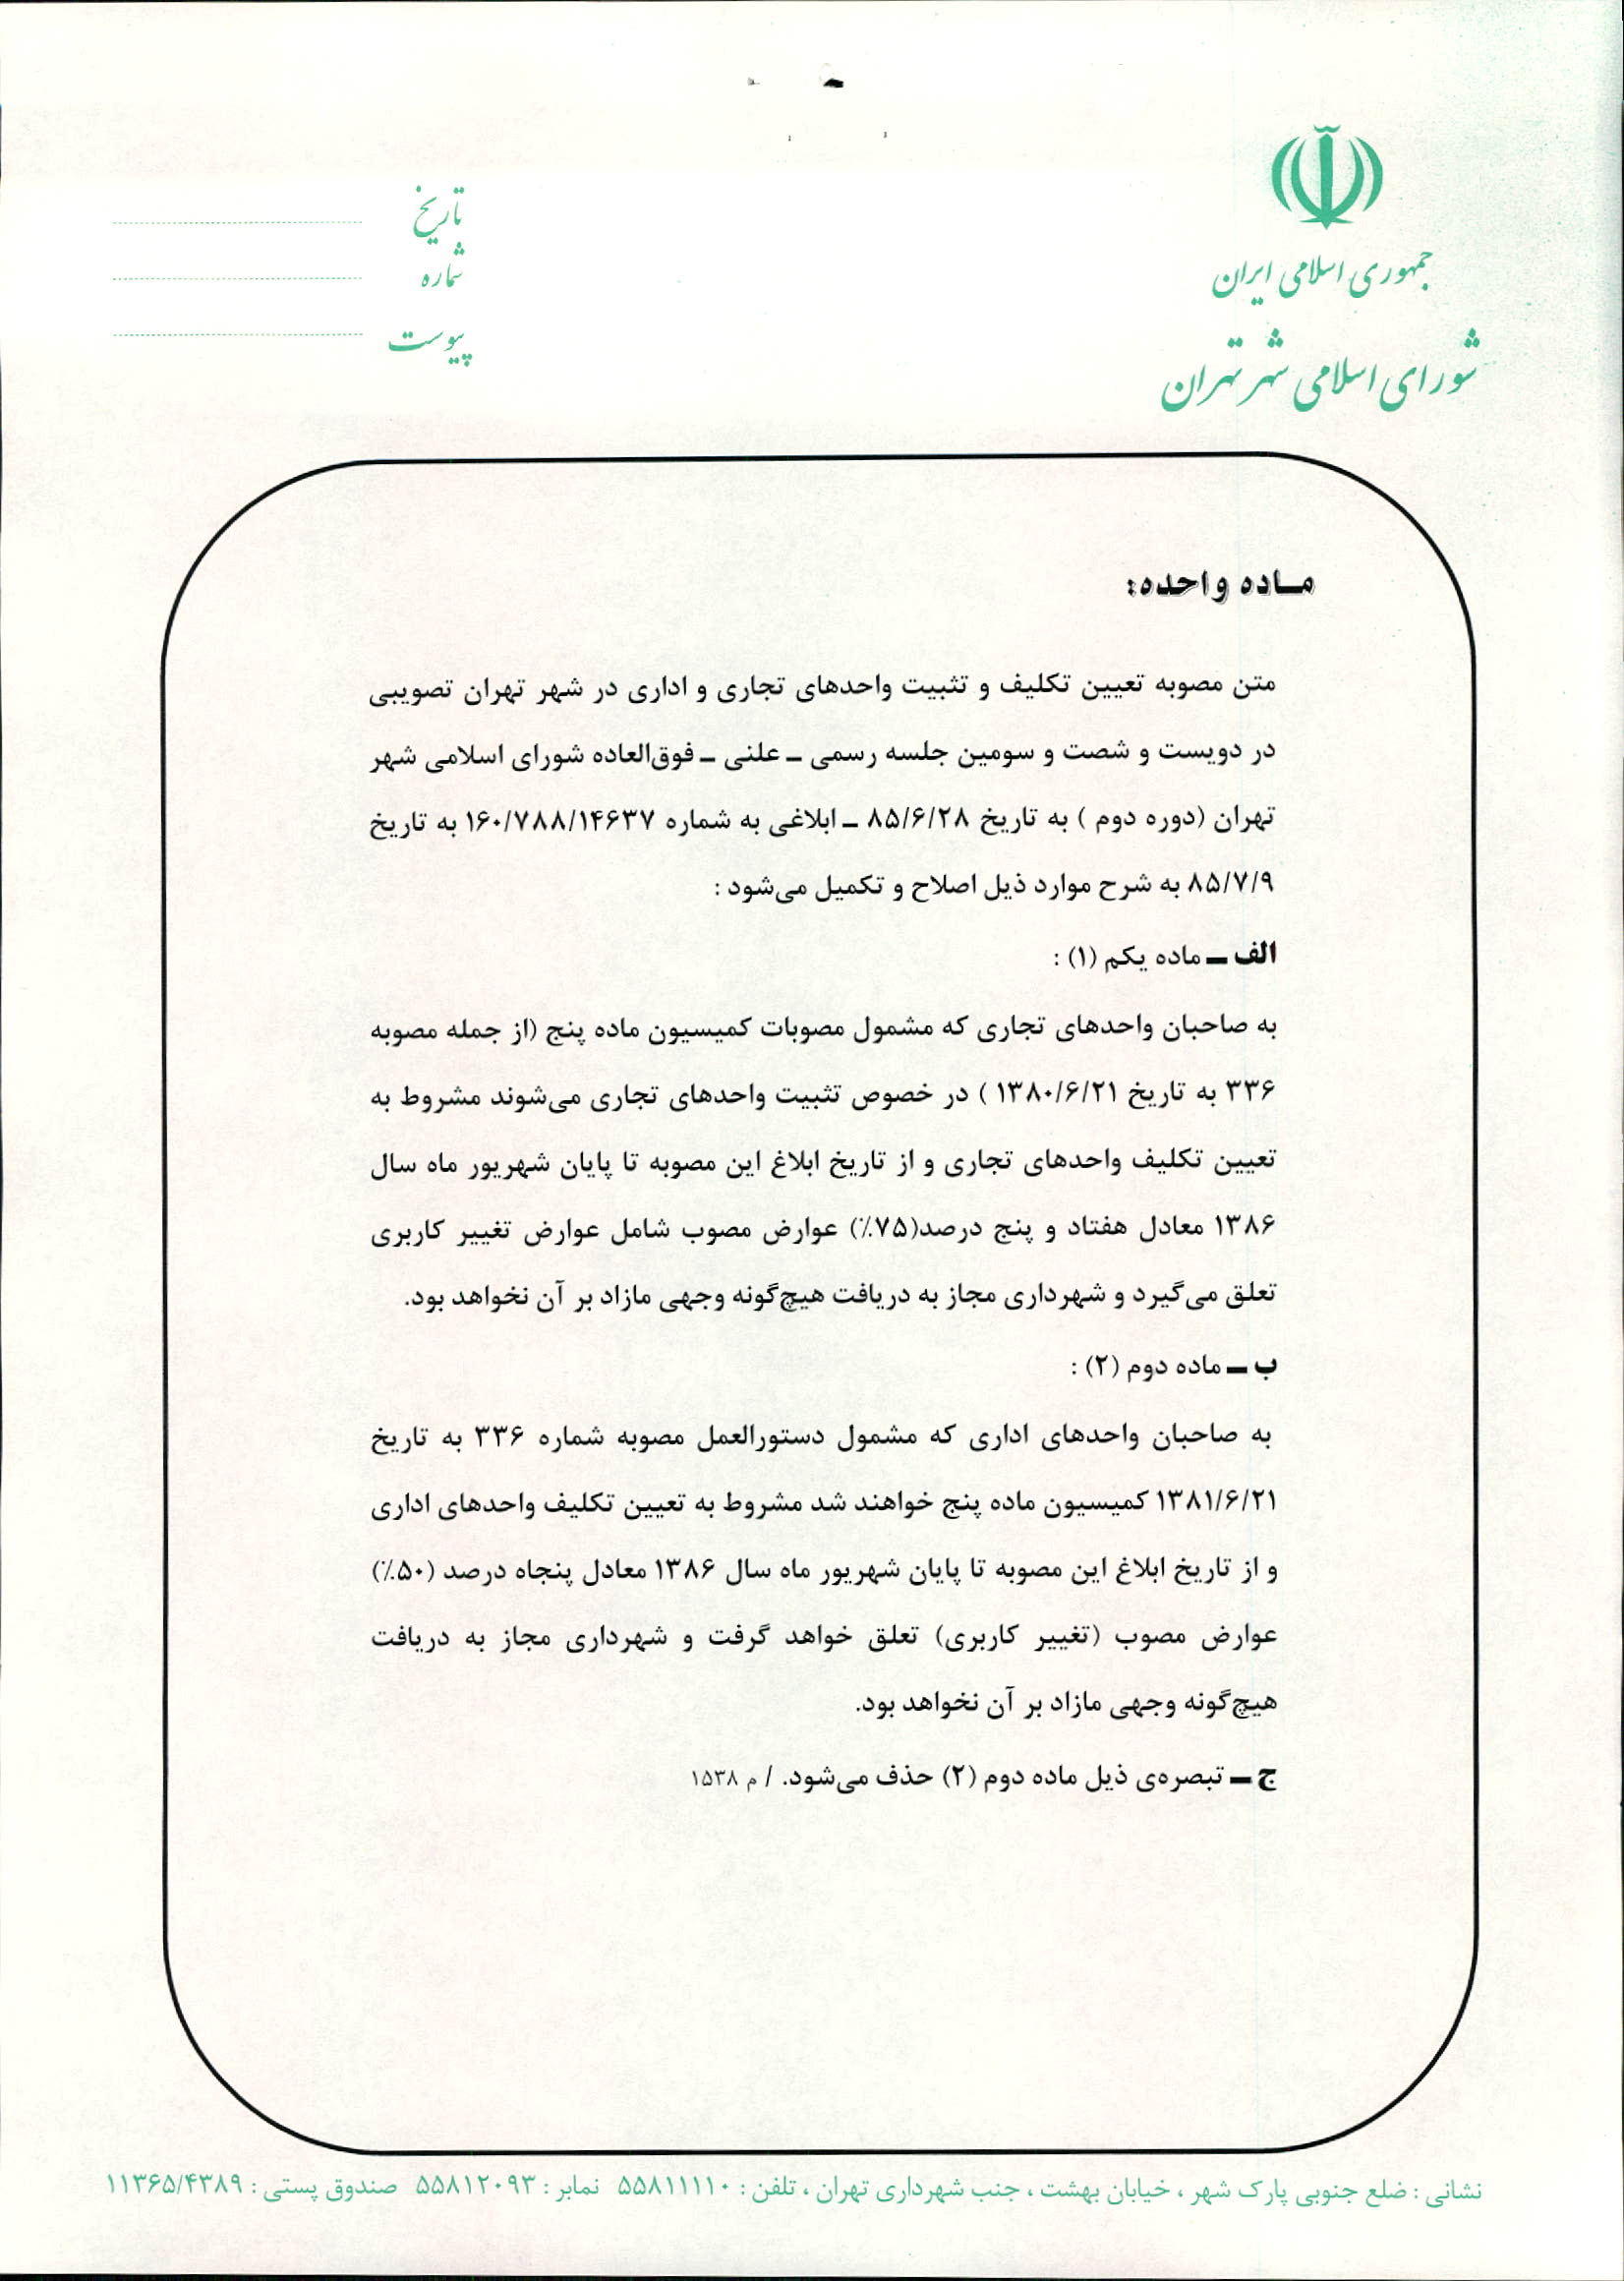 جمهوری اسلامی ایران
شورای اسلامی شهر تهران
تاریخ
شماره
پیوست
ماده واحده:
متن مصوبه تعیین تکلیف و تثبیت واحدهای تجاری و اداری در شهر تهران تصویبی
در دویست و شصت و سومین جلسه رسمی ـ علنی ـ فوق‌العاده شورای اسلامی شهر
تهران (دوره دوم ) به تاریخ ۸۵/۶/۲۸ ـ ابلاغی به شماره ۱۶۰/۷۸۸/۱۴۶۳۷ به تاریخ
۸۵/۷/۹ به شرح موارد ذیل اصلاح و تکمیل می‌شود :
الف ـ ماده یکم (۱) :
به صاحبان واحدهای تجاری که مشمول مصوبات کمیسیون ماده پنج (از جمله مصوبه
۳۳۶ به تاریخ ۱۳۸۰/۶/۲۱ ) در خصوص تثبیت واحدهای تجاری می‌شوند مشروط به
تعیین تکلیف واحدهای تجاری و از تاریخ ابلاغ این مصوبه تا پایان شهریور ماه سال
۱۳۸۶ معادل هفتاد و پنج درصد(۷۵٪) عوارض مصوب شامل عوارض تغییر کاربری
تعلق می‌گیرد و شهرداری مجاز به دریافت هیچ‌گونه وجهی مازاد بر آن نخواهد بود.
ب ـ ماده دوم (۲) :
به صاحبان واحدهای اداری که مشمول دستورالعمل مصوبه شماره ۳۳۶ به تاریخ
۱۳۸۱/۶/۲۱ کمیسیون ماده پنج خواهند شد مشروط به تعیین تکلیف واحدهای اداری
و از تاریخ ابلاغ این مصوبه تا پایان شهریور ماه سال ۱۳۸۶ معادل پنجاه درصد (۵۰٪)
عوارض مصوب (تغییر کاربری) تعلق خواهد گرفت و شهرداری مجاز به دریافت
هیچ‌گونه وجهی مازاد بر آن نخواهد بود.
ج ـ تبصره‌ی ذیل ماده دوم (۲) حذف می‌شود. / م ۱۵۳۸
نشانی : ضلع جنوبی پارک شهر ، خیابان بهشت ، جنب شهرداری تهران ، تلفن : ۵۵۸۱۱۱۱۰ نمابر : ۵۵۸۱۲۰۹۳ صندوق پستی : ۱۱۳۶۵/۴۳۸۹